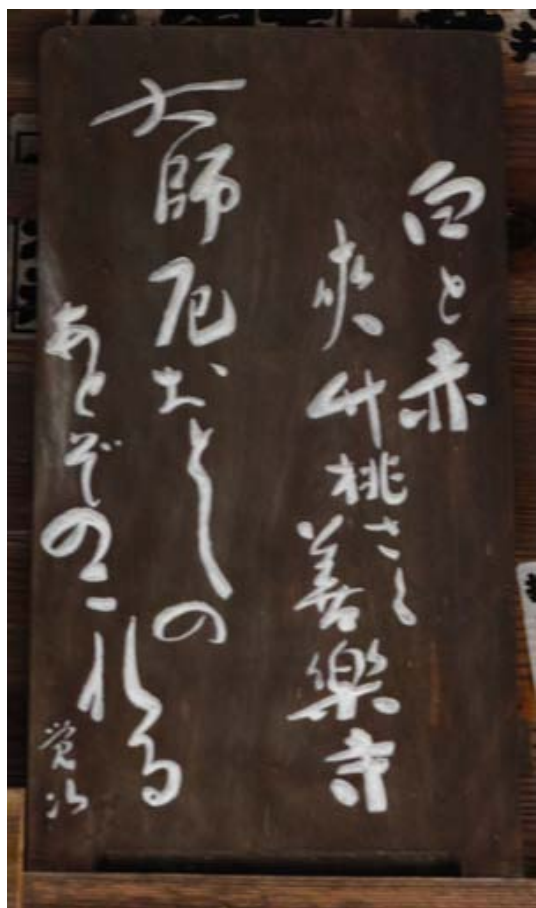 白と赤
夾竹桃さく善楽寺
大師厄おとしの
あとぞのこれる
覚